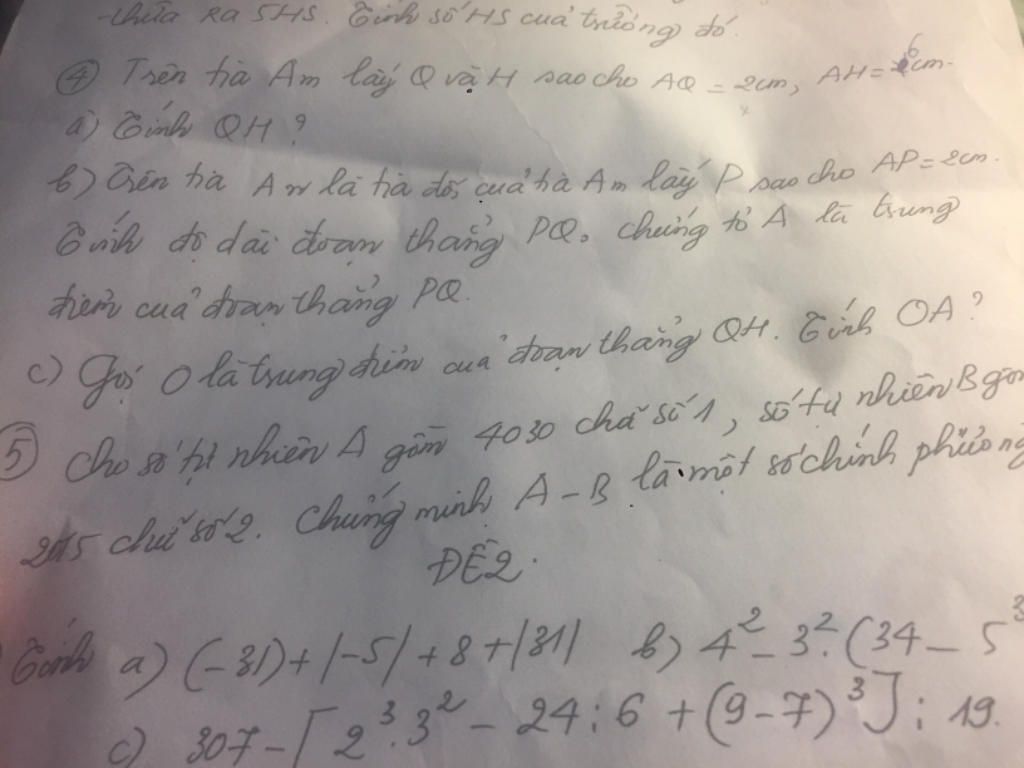 thừa ra 5HS. Tính số HS của trường đó.
④ Trên tia Am lấy Q và H sao cho AQ = 2cm, AH = 6cm.
a) Tính QH ?
b) Trên tia An là tia đối của tia Am lấy P sao cho AP = 2cm.
Tính độ dài đoạn thẳng PQ. chứng tỏ A là trung
điểm của đoạn thẳng PQ.
c) Gọi O là trung điểm của đoạn thẳng QH. Tính OA ?
⑤ Cho số tự nhiên A gồm 4030 chữ số 1, số tự nhiên B gồm
2015 chữ số 2. Chứng minh A - B là một số chính phương
ĐỀ 2.
Tính a) (-31) + |-5| + 8 + |31| b) 4² - 3². (34 - 5³
c) 307 - [2³.3² - 24 : 6 + (9-7)³] : 19.